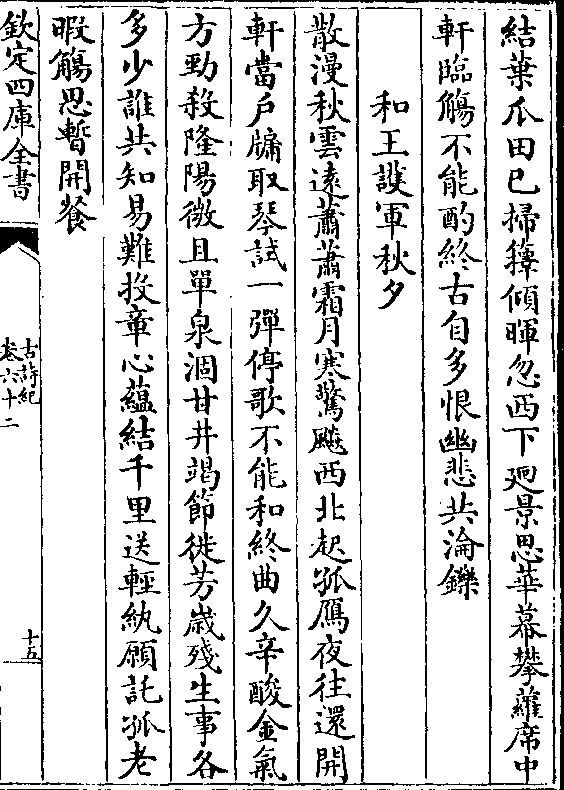 結葉爪田已掃籜傾暉忽西下廻景思華幕攀蘿席中
軒臨觴不能酌終古自多恨幽悲共淪鑠
和王䕶軍秋夕
散漫秋雲遠蕭蕭霜月寒驚飈西北起孤鴈夜往還開
軒當户牖取琴試一彈停歌不能和終曲久辛酸金氣
方勁殺隆陽微且單泉涸甘井竭節徙芳嵗殘生事各
多少誰共知易難投章心蘊結千里送輕紈願託孤老
暇觴思暫開餐
欽定四庫全書
古詩紀
卷六十二
十五